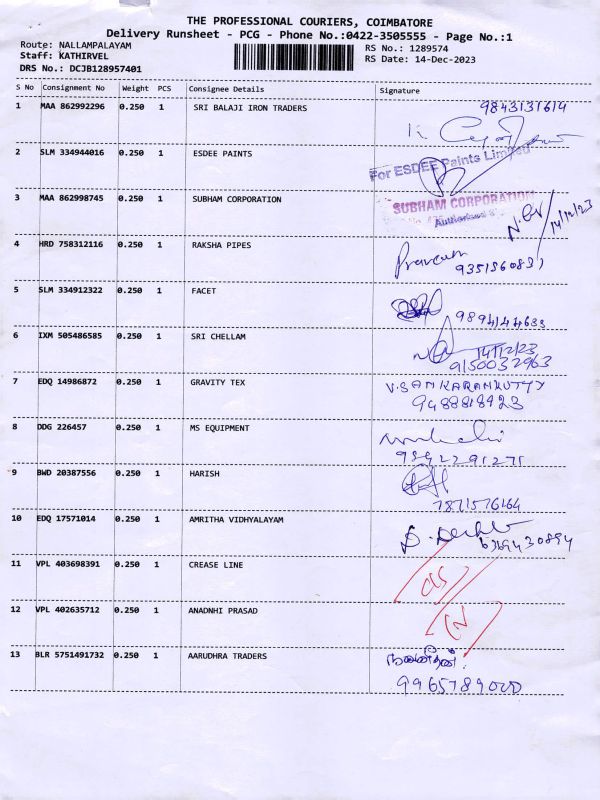 THE PROFESSIONAL COURIERS, COIMBATORE
Delivery Runsheet - PCG - Phone No.:0422-3505555 - Page No.:1
Route: NALLAMPALAYAM RS No.: 1289574
Staff: KATHIRVEL RS Date: 14-Dec-2023
DRS No.: DCJB128957401
S No Consignment No Weight PCS Consignee Details Signature
1 MAA 862992296 0.250 1 SRI BALAJI IRON TRADERS 9843131614
2 SLM 334944016 0.250 1 ESDEE PAINTS
For ESDEE Paints Limited
3 MAA 862998745 0.250 1 SUBHAM CORPORATION
SUBHAM CORPORATION
14/12/23
4 HRD 758312116 0.250 1 RAKSHA PIPES
Praveen
5 SLM 334912322 0.250 1 FACET
9894144633
6 IXM 505486585 0.250 1 SRI CHELLAM
14/12/23
9150032963
7 EDQ 14986872 0.250 1 GRAVITY TEX V.SANKARANKUTTY
9488818923
8 DDG 226457 0.250 1 MS EQUIPMENT
9 BWD 20387556 0.250 1 HARISH
7871576164
10 EDQ 17571014 0.250 1 AMRITHA VIDHYALAYAM
6369430894
11 VPL 403698391 0.250 1 CREASE LINE
12 VPL 402635712 0.250 1 ANADNHI PRASAD
13 BLR 5751491732 0.250 1 AARUDHRA TRADERS
9965789020